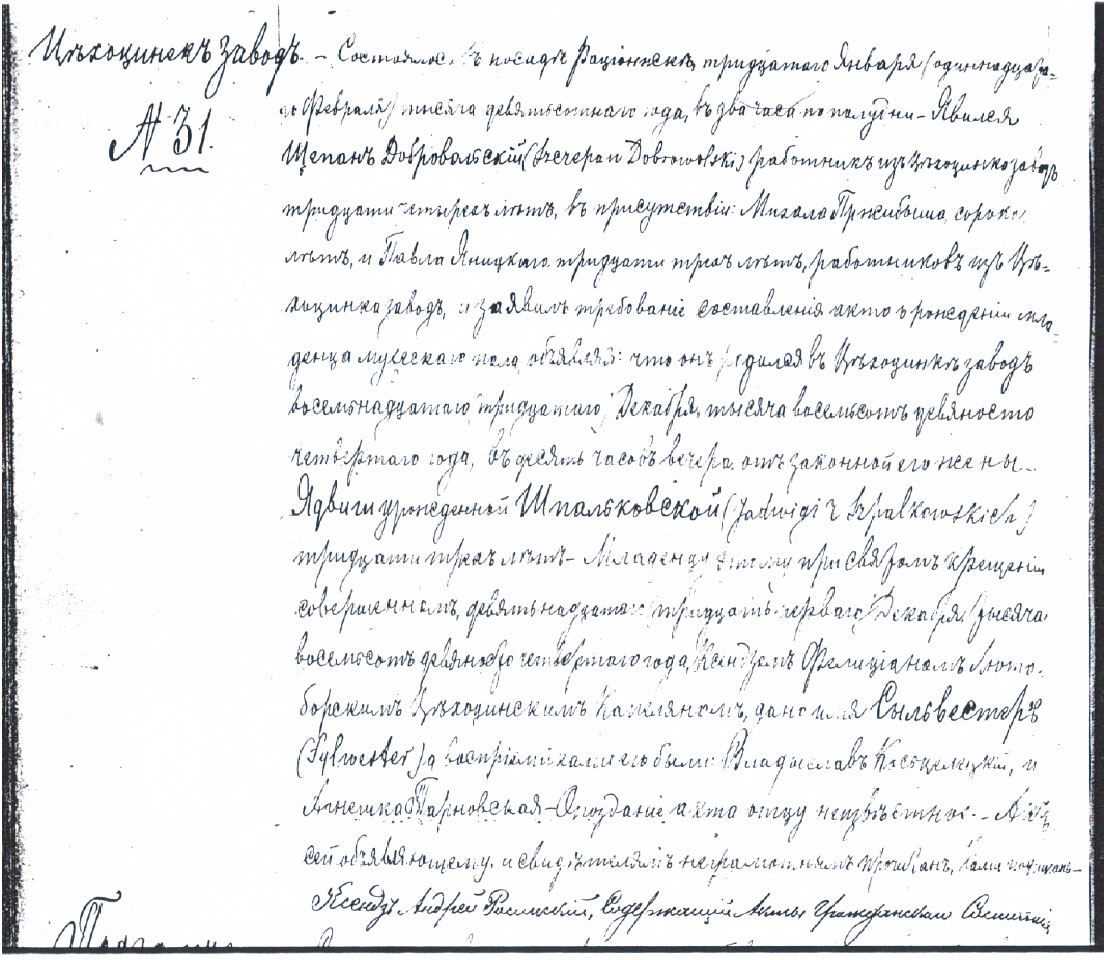 Цѣхоцинекъ Заводъ. – Состоялось въ посадѣ Раціонжекъ, тридцатаго Января (одиннадцата-
№ 31.
го Февраля) тысяча девятьсотнаго года, въ два часа по полудни – Явился
Щепанъ Добровольскій, (Szczepan Dobrowolski) работникъ изъ Цѣхоцинка заводъ
тридцати четырехъ лѣтъ, въ присутствіи: Михала сорока
лѣтъ, и Павла Яницкаго, тридцати трехъ лѣтъ, работниковъ изъ Цѣ-
хоцинка заводъ, и заявилъ требованіе составленія акта о рожденіи мла-
денца мужескаго пола, объявляя: что онъ родился въ Цѣхоцинкѣ заводъ
восемьнадцатаго (тридцатаго) Декабря, тысяча восемьсотъ девяносто
четвертаго года, въ десять часовъ вечера, отъ законной его жены –
Ядвиги урожденной Шпальковской (Jadwigi z Szpalkowskich)
тридцати трехъ лѣтъ – Младенцу этому при святомъ крещеніи
совершенномъ, девятьнадцатаго (тридцать перваго) Декабря, тысяча
восемьсотъ девяносто четвертаго года, Ксендзомъ Фелиціаномъ Люто-
борскимъ Цѣхоцинскимъ Капеляномъ, дано имя Сыльвестеръ
(Sylwester) а воспріемниками его были: Владыславъ и
Агнешка Тарновская – Опозданіе акта отцу неизвѣстное. – Актъ
сей объявляющему и свидѣтелямъ неграмотнымъ прочитанъ, нами подписанъ –
Ксендзъ Андрей Содержащій Акты Гражданскаго Состоянія